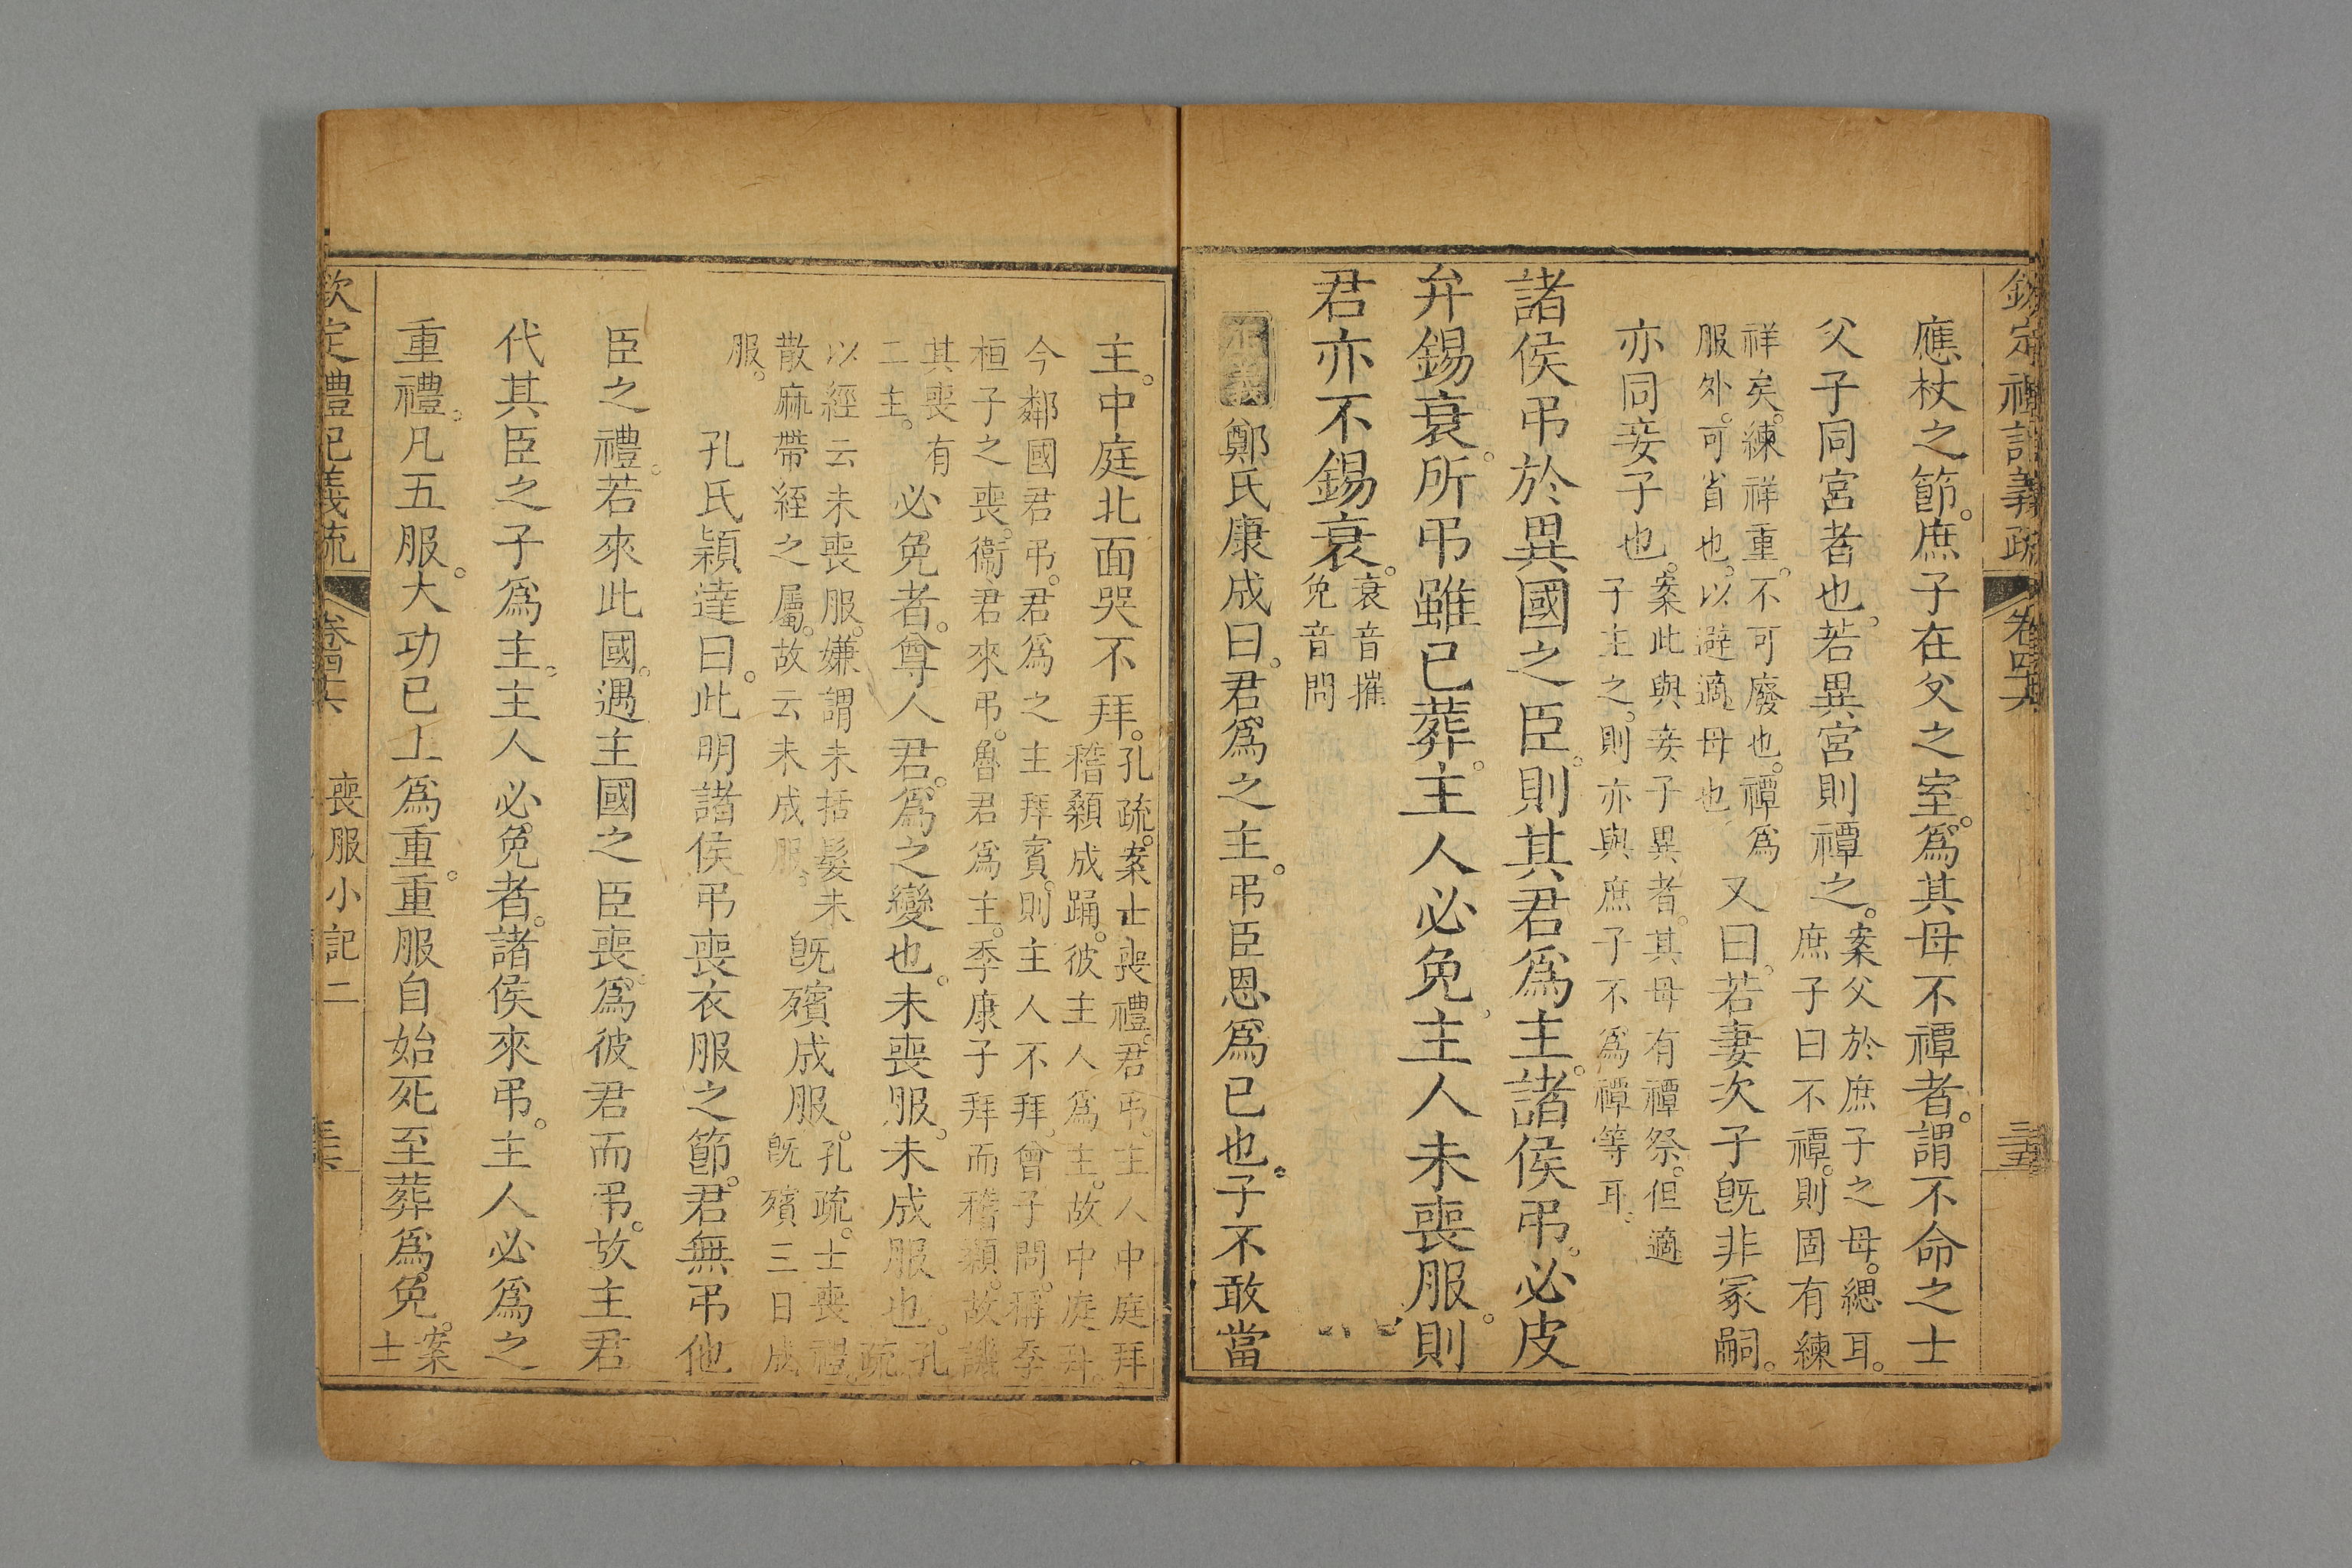 欽定禮記義疏 卷四十六 三五
應杖之節。庶子在父之室。爲其母不禫者。謂不命之士
父子同宮者也。若異宮則禫之。
案父於庶子之母。緦耳。
庶子曰不禫。則固有練
祥矣。練祥重。不可廢也。禫爲
服外。可省也。以避適母也。
又曰。若妻次子旣非冢嗣。
亦同妾子也。
案此與妾子異者。其母有禫祭。但適
子主之。則亦與庶子不爲禫等耳。
諸侯弔於異國之臣。則其君爲主。諸侯弔。必皮
弁錫衰。所弔雖已葬。主人必免。主人未喪服。則
君亦不錫衰。
衰音摧
免音問
正義 鄭氏康成曰。君爲之主。弔臣恩爲已也。子不敢當
主。中庭北面哭不拜。
孔疏。案士喪禮。君弔。主人中庭拜
稽顙成踊。彼主人爲主。故中庭拜。
今鄰國君弔。君爲之主拜賓。則主人不拜。曾子問。稱季
桓子之喪。衞君來弔。魯君爲主。季康子拜而稽顙。故譏
其喪有
二主。
必免者。尊人君。爲之變也。未喪服。未成服也。
孔
疏
以經云未喪服。嫌謂未括髮未
散麻帶絰之屬。故云未成服。
旣殯成服。
孔疏。士喪禮。
旣殯三日成
服。
孔氏穎達曰。此明諸侯弔喪衣服之節。君無弔他
臣之禮。若來此國。遇主國之臣喪。爲彼君而弔。故主君
代其臣之子爲主。主人必免者。諸侯來弔。主人必爲之
重禮。凡五服。大功已上爲重。重服自始死至葬爲免。
案
士
欽定禮記義疏 卷四十六 喪服小記二 三六